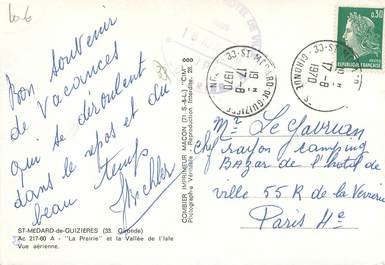 Bon souvenir
de vacances
qui se déroulent
dans le repos et du
beau temps
ST-MEDARD-de-GUIZIERES (33. Gironde)
Ac 217-60 A - "La Prairie" et la Vallée de l'Isle
Vue aérienne.
COMBIER IMPRIMEUR MACON (71. S.-&-L.) "CIM"
Photographie Véritable - Reproduction Interdite.
33-ST-MEDARD-DE-GUIZIERES
17-8
1970
GIRONDE
0,30
REPUBLIQUE FRANCAISE
Mr Le Gavrian
Chef rayon camping
Bazar de l'hotel de
ville 55 R de la Verrerie
Paris 4e